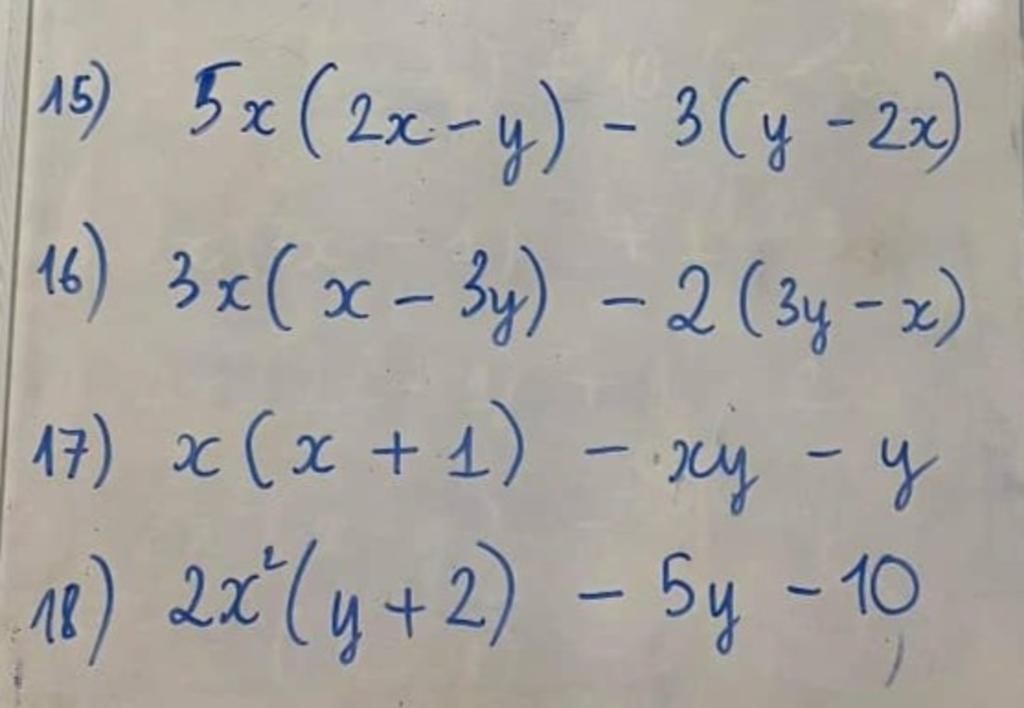 15) 5x(2x-y) - 3(y-2x)
16) 3x(x-3y) - 2(3y-x)
17) x(x+1) - xy - y
18) 2x²(y+2) - 5y - 10